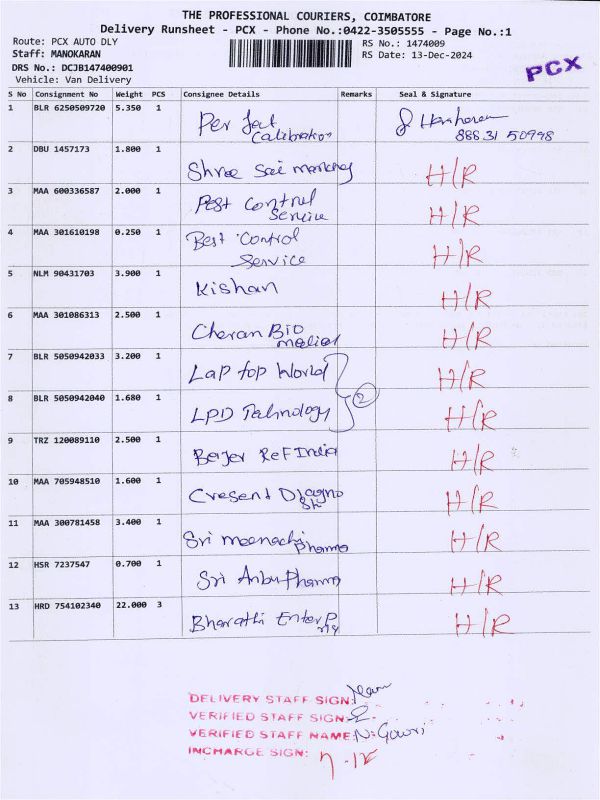 THE PROFESSIONAL COURIERS, COIMBATORE
Delivery Runsheet - PCX - Phone No.:0422-3505555 - Page No.:1
Route: PCX AUTO DLY
RS No.: 1474009
Staff: MANOKARAN
RS Date: 13-Dec-2024
DRS No.: DCJB147400901
PCX
Vehicle: Van Delivery
S No Consignment No Weight PCS Consignee Details Remarks Seal & Signature
1 BLR 6250509720 5.350 1 Perfect
Calibration
88831 50998
2 DBU 1457173 1.800 1 Shree Sai H/R
3 MAA 600336587 2.000 1 Pest Control H/R
Service
4 MAA 301610198 0.250 1 Best Control H/R
Service
5 NLM 90431703 3.900 1 Kishan H/R
6 MAA 301086313 2.500 1 Cheran Bio H/R
medical
7 BLR 5050942033 3.200 1 Lap top World H/R
2
8 BLR 5050942040 1.680 1 LPD H/R
9 TRZ 120089110 2.500 1 Ref India H/R
10 MAA 705948510 1.600 1 Cresent Diagno H/R
11 MAA 300781458 3.400 1 Sri meenachi H/R
Pharma
12 HSR 7237547 0.700 1 Sri Anbu Pharma H/R
13 HRD 754102340 22.000 3 Bharathi Enterp H/R
DELIVERY STAFF SIGN:
VERIFIED STAFF SIGN:
VERIFIED STAFF NAME: N. Gowri
INCHARGE SIGN: